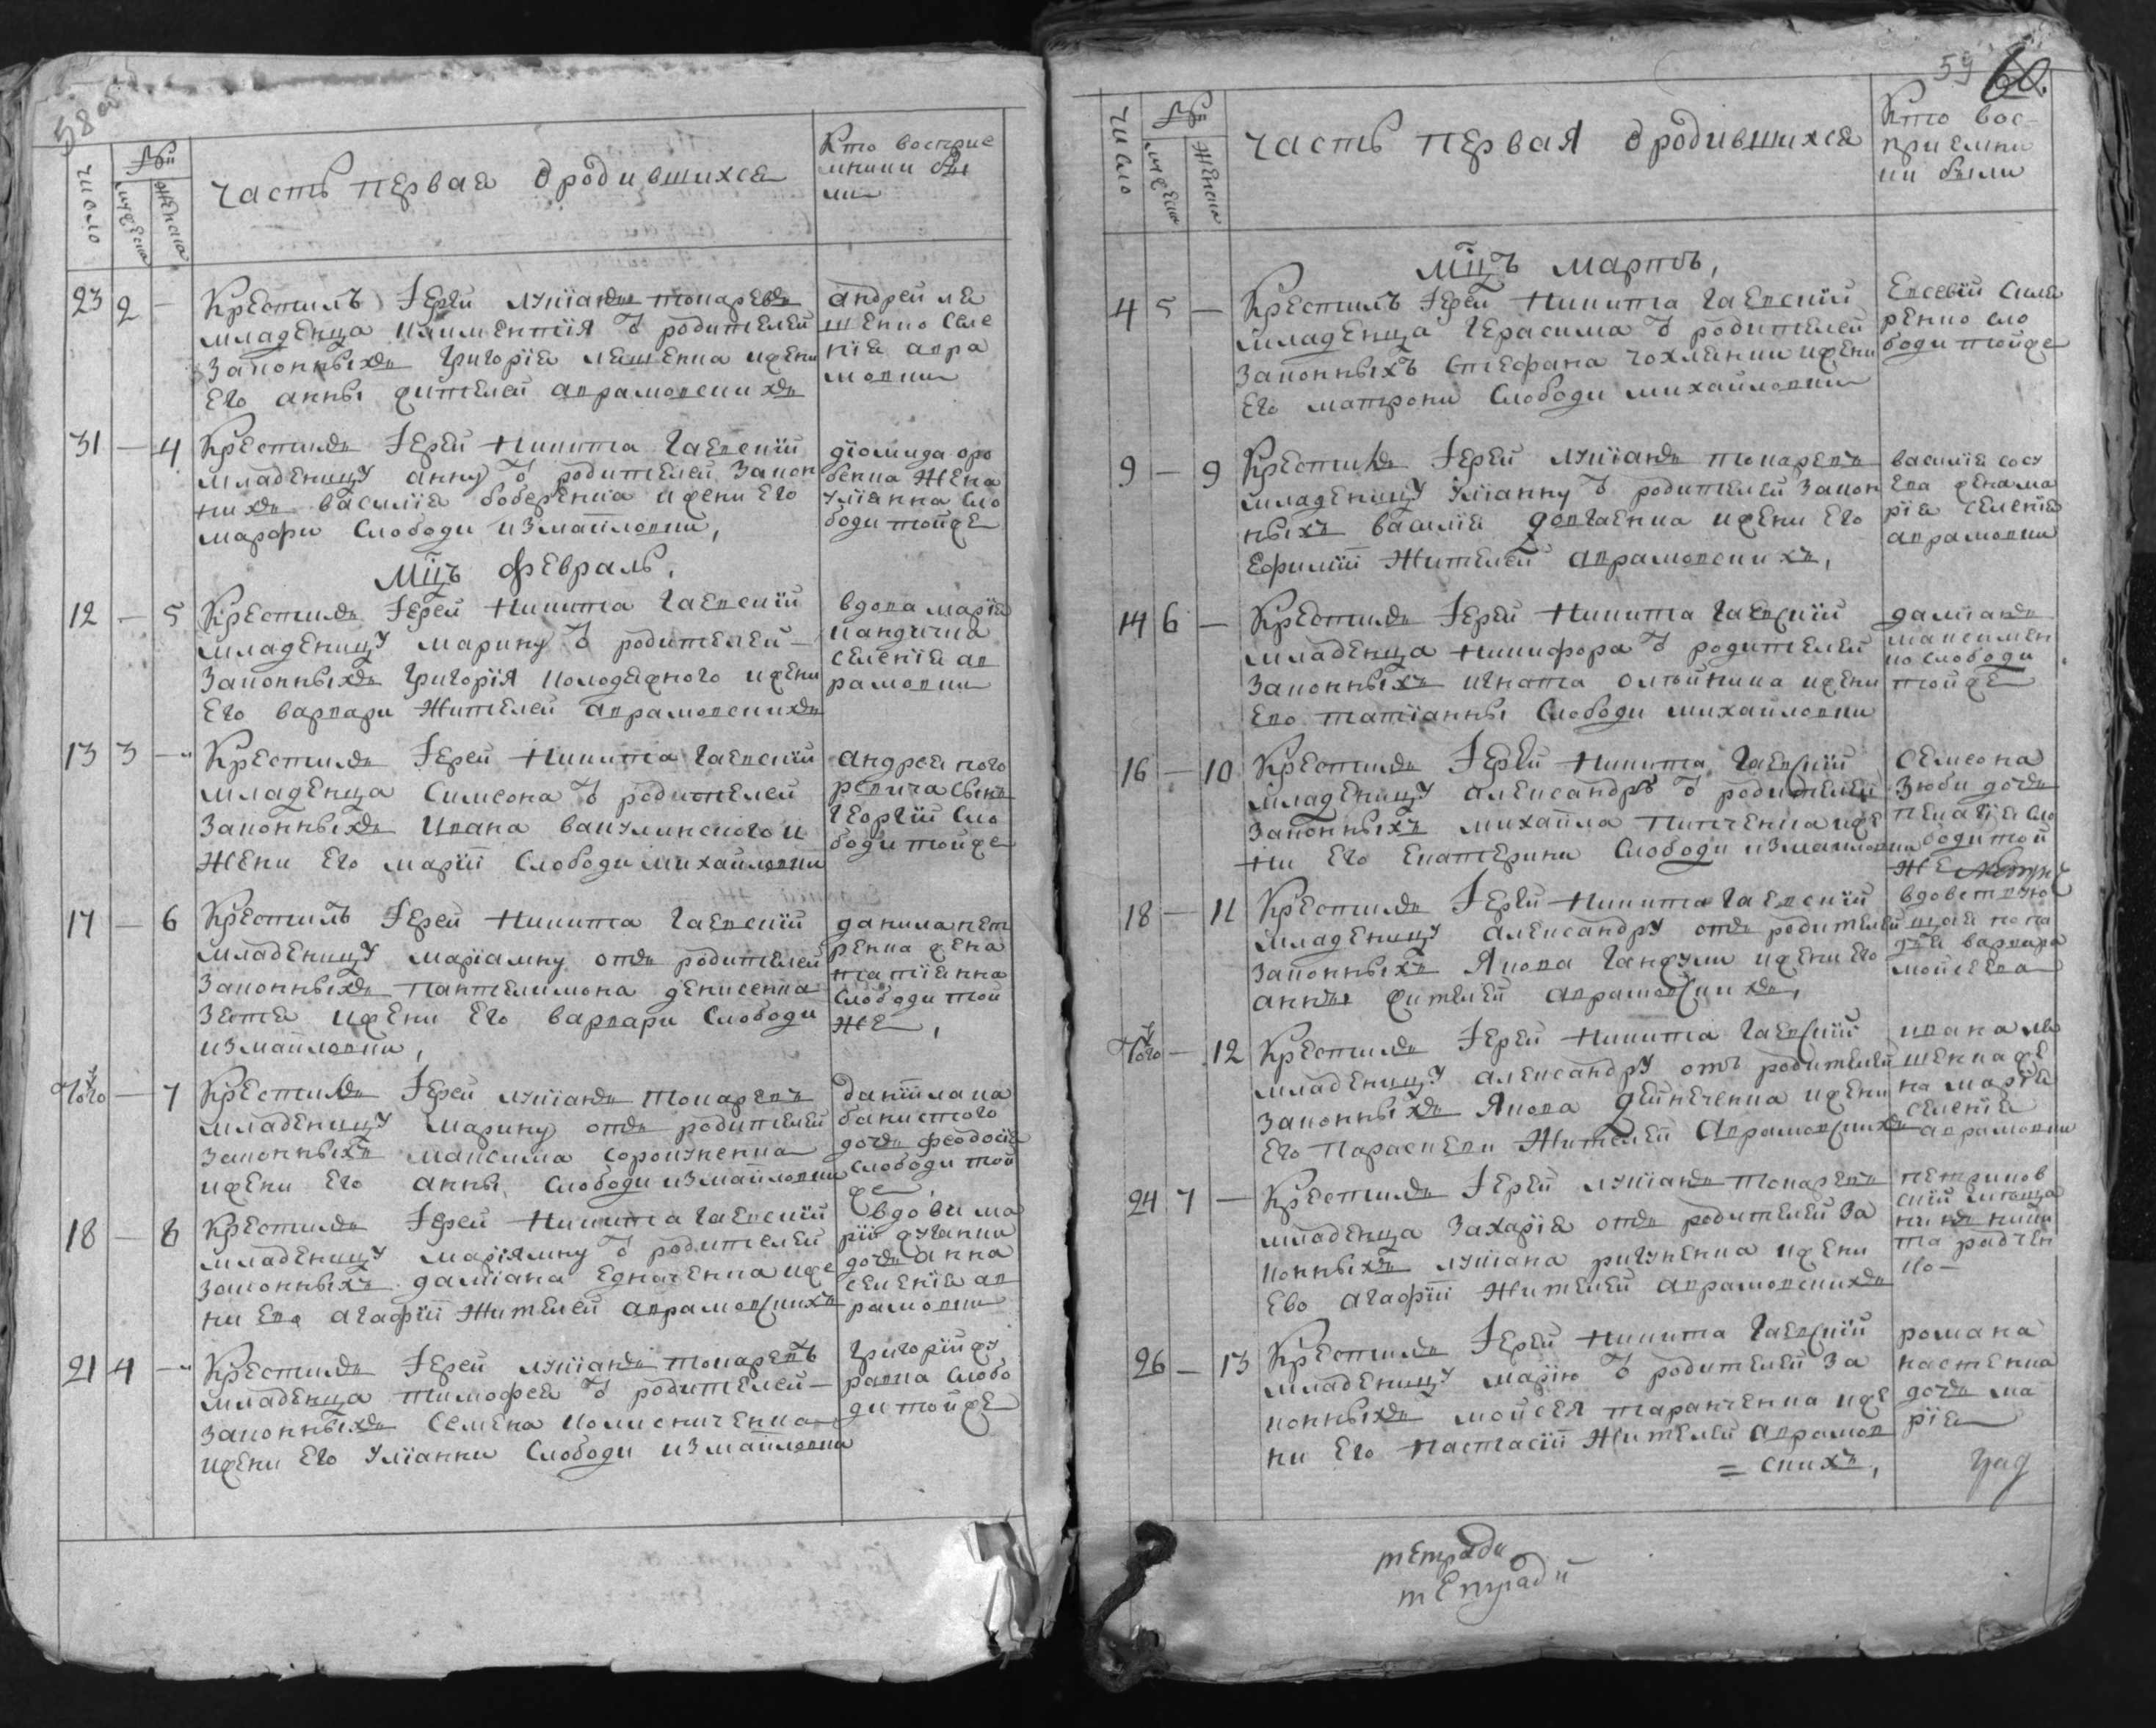 58 об
число
№
мужеска
женска
часть первая о родившихся
Кто восприе
мники бы
ли
23 2 —
Крестилъ Іерей Лукіанъ Токаревъ
младенца Климентія ѿ родителей
Законныхъ Григорія Лешенка ижени
Его анны жителей аврамовскихъ
андрей ле
шенко селе
нія авра
мовки
31 — 4
Крестилъ Іерей Никита Гаевскій
младеницу анну ѿ родителей Закон
нихъ василія боберенка ижени Его
марфи Слободи измайловки,
діомида оро
бенка жена
уліанна сло
боди тойже
Мцъ февраль,
12 — 5
Крестилъ Іерей Никита Гаевскій
младеницу марину ѿ родителей —
Законныхъ Григорія колодежного ижени
Его варвари Жителей аврамовскихъ
вдова марія
кандичка
селенія ав
рамовки
13 3 —
Крестилъ Іерей Никита Гаевскій
младенца Симеона ѿ родителей
Законныхъ Ивана вакулинского и
жени Его маріи Слободи михайловки
андрея пого
ревича сынъ
Георгій Сло
боди тойже
17 — 6
Крестилъ Іерей Никита Гаевскій
младеницу маріамну отъ родителей
Законныхъ пантелимона денисенка
Зетя ижени Его варвари Слободи
измайловки,
данила пет
ренка жена
татіанна
Слободи той
же,
Того — 7
Крестилъ Іерей Лукіанъ Токаревъ
младеницу марину отъ родителей
Законныхъ максима сорокуненка
ижени Его анны, Слободи измайловки
даніила ка
банистого
дочъ феодосія
Слободи той
же,
18 — 8
Крестилъ Іерей Никита Гаевскій
младеницу маріямну ѿ родителей
Законныхъ даміана Едначенка иже
ни Его агафіи Жителей аврамовскихъ
вдови ма
ріи дуганки
дочъ анна
селенія ав
рамовки
21 4 —
Крестилъ Іерей Лукіанъ Токаревъ
младенца тимофея ѿ родителей —
Законныхъ Семена коломійченка
ижени Его уліанни Слободи измайловки
Григорій жу
равка слобо
ди тойже
59 60.
число
№
мужеска
женска
часть первая о родившихся
Кто вос-
приемни
ки были
Мцъ мартъ,
4 5 —
Крестилъ Іерей Никита Гаевскій
младенца Герасима ѿ родителей
Законныхъ Стефана чохленки ижени
Его матрони Слободи михайловки
Евсевій Скля
ренко сло
боди тойже
9 — 9
Крестилъ Іерей Лукіанъ Токаревъ
младеницу уліанну ѿ родителей Закон
ныхъ василія довгаенка ижени Его
Ефиміи Жителей аврамовскихъ,
василія сосу
Ева жена ма
рія селенія
аврамовки
14 6 —
Крестилъ Іерей Никита Гаевскій
младенца никифора ѿ родителей
Законныхъ игната олейника ижени
Ево татіанны Слободи михайловки
даміанъ
максимен
ко слободи
тойже
16 — 10
Крестилъ Іерей Никита Гаевскій
младеницу александру ѿ родителей
Законныхъ михайла питченка иже
ни Его Екатерини Слободи измайловки
Семеона
Зюби дочъ
пелагіея сло
боди той
же
18 — 11
Крестилъ Іерей Никита Гаевскій
младеницу александру отъ родителей
Законныхъ Якова Ганжули ижени Его
анны жителей аврамовскихъ,
вдовствую
щая попа
дѣя варвара
мойсеева
Того — 12
Крестилъ Іерей Никита Гаевскій
младеницу александру отъ родителей
Законныхъ Якова дейнеченка ижени
Его параскеви Жителей аврамовскихъ
ивана ле
шенка же
на марія
селенія
аврамовки
24 7 —
Крестилъ Іерей Лукіанъ Токаревъ
младенца Захарія отъ родителей За
конныхъ лукіана ригуненка ижени
Ево агафіи Жителей аврамовскихъ
петриков
скій мѣща
нинъ ники
та радчен
ко —
26 — 13
Крестилъ Іерей Никита Гаевскій
младеницу марію ѿ родителей За
конныхъ мойсея таранченка иже
ни Его настасіи Жителей аврамов
= скихъ,
романа
костенка
дочъ ма
рія
тетради
тетрадй